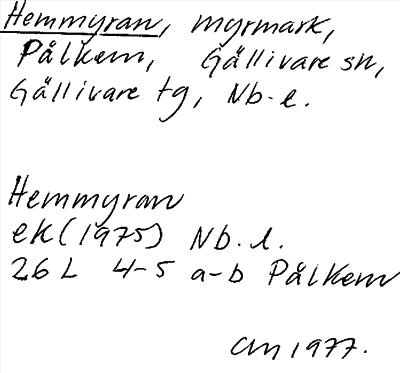 Hemmyran, myrmark,
Pålkem, Gällivare sn,
Gällivare tg, Nb. l.
Hemmyran
ek (1975) Nb. l.
26 L 4-5 a-b Pålkem
1977.